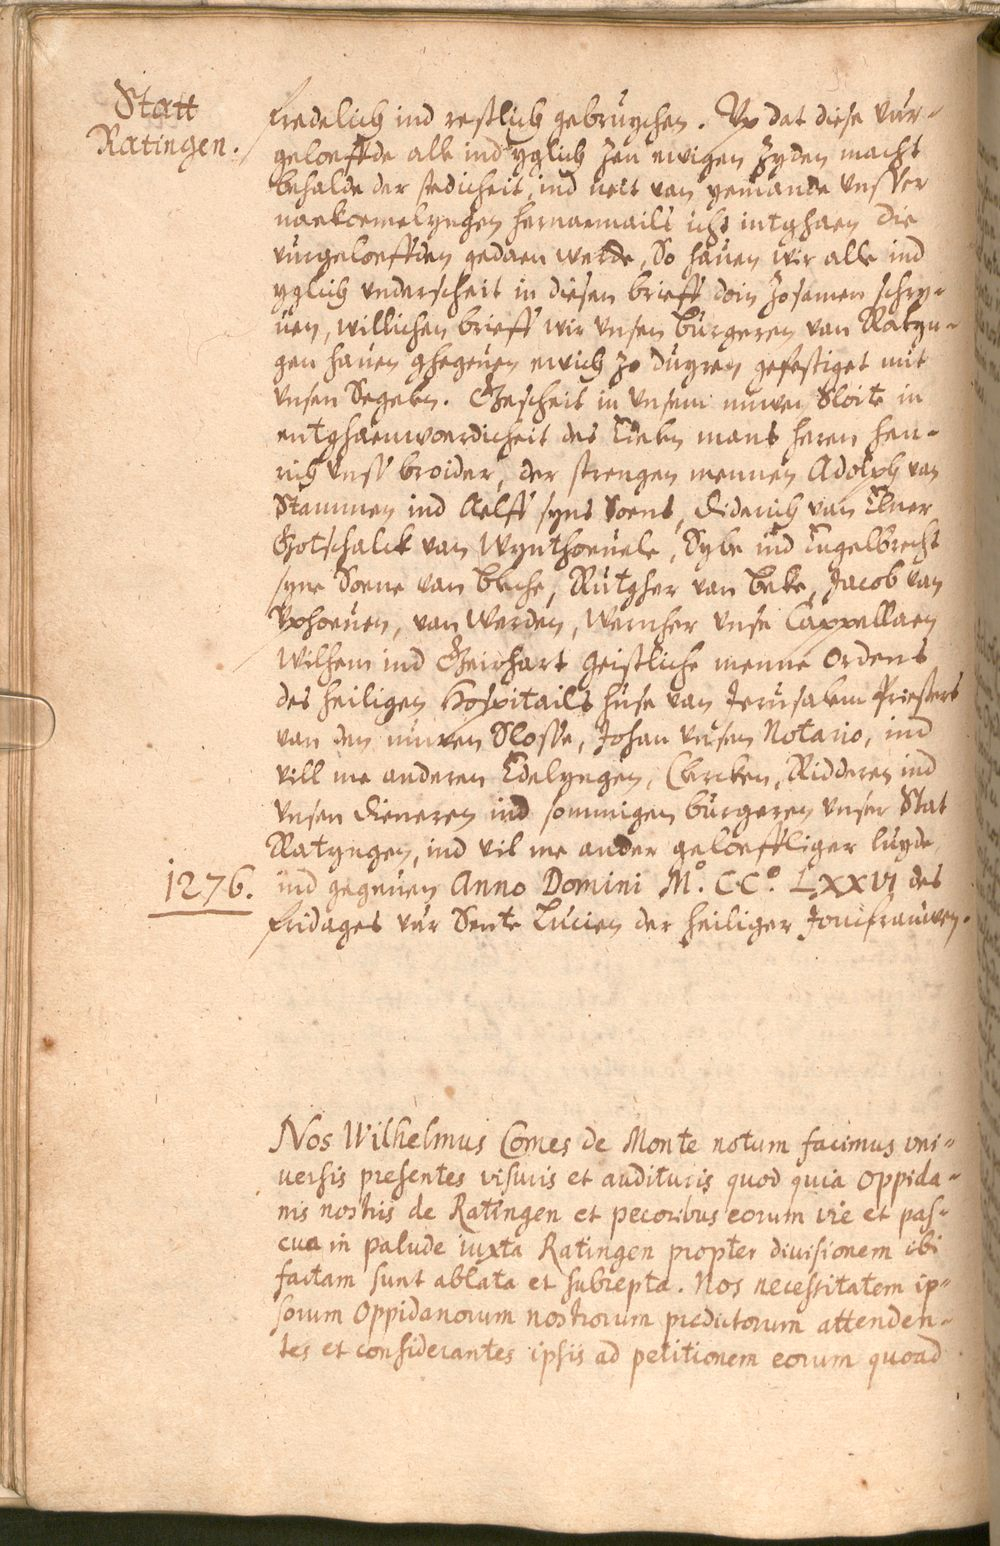 Statt
Ratingen.
fredelich ind restlich gebruychen. Up dat diese vur-
geloeffde alle ind yglich zen ewigen zyden macht
behalde der stedicheit, ind neit van yemande unsser
naekoemelyngen hernaemails icht intghaen die
vurgeloeffden gedaen werde, So hauen wir alle ind
yglich underscheit in diesen brieff doin zosamen schry-
uen, willichen brieff wir unsen burgeren van Ratyn-
gen hauen ghegeuen ewich zo duyren gefestiget mit
unsen Segelen. Gescheit in unsem nuwen Sloite in
entghaenwoerdicheit des Edelen mans heren Hen-
rich unss broider, der strengen mennen Adolph van
Stammen ind Aelff syns Soens, Diderich van Elner
Gotschalck van Wynthoeuele, Sybe ind Engelbrecht
syne Soene van Beche, Rutgher van Beke, Jacob van
Uphoeuen, van Werden, Wernher unse Cappellaen
Wilhem ind Geirhart geistliche menne Ordens
des heiligen Hospitails huse van Jerusalem Priesters
van den nuwen Slosse, Johan unsen Notario, ind
vill me anderen Edelyngen, Clercken, Ridderen ind
unsen dieneren ind sommigen burgeren unser Stat
Ratyngen, ind vil me ander geloeffliger luyde
1276.
ind gegeuen Anno Domini M°. CC°. LXXVI des
fridages vur Sente Lucien der heiliger Jonfrauwen.
Nos Wilhelmus Comes de Monte notum facimus uni-
versis presentes visuris et audituris quod quia Oppida-
nis nostris de Ratingen et pecoribus eorum vie et pas-
cua in palude iuxta Ratingen propter divisionem ibi
factam sunt ablata et subrepta. Nos necessitatem ip-
sorum Oppidanorum nostrorum predictorum attenden-
tes et considerantes ipsis ad petitionem eorum quoad